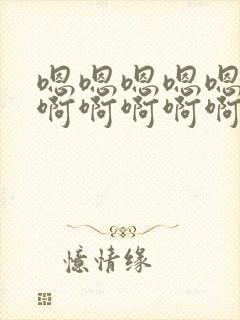 嗯嗯嗯嗯嗯
啊啊啊啊啊
憶情缘